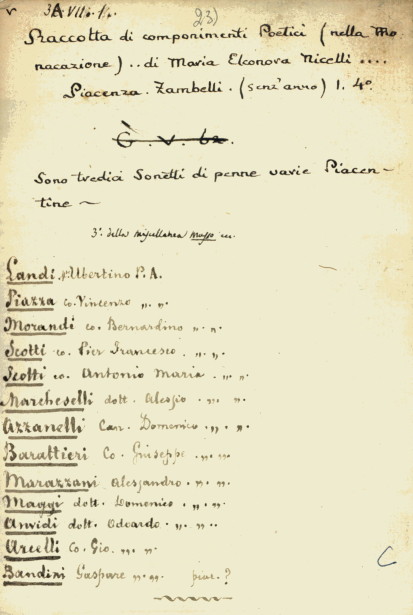 3A.VII.1/2. 23)
Raccolta di componimenti Poetici (nella Mo
nacazione) .. di Maria Eleonora Nicelli ....
Piacenza . Zambelli . (senz'anno) 1. 4º
G . V . 62 .
Sono tredici Sonetti di penne varie Piacen-
tine ~
3º. della miscellanea
Landi Ubertino P. A.
Piazza co. Vincenzo „ „
Morandi co. Bernardino „ . „ .
Scotti co. Pier Francesco . „ . „
Scotti co. Antonio Maria . „ . „
Marcheselli dott. Alessio . „ . „
Azzanelli Can. Domenico . „ . „
Barattieri Co. Giuseppe . „ . „
Marazzani Alessandro . „ . „
Maggi dott. Domenico . „ . „
Anvidi dott. Odoardo . „ . „
Arcelli Co. Gio. „ . „
Bandini Gaspare „ . „ piac. ?
C